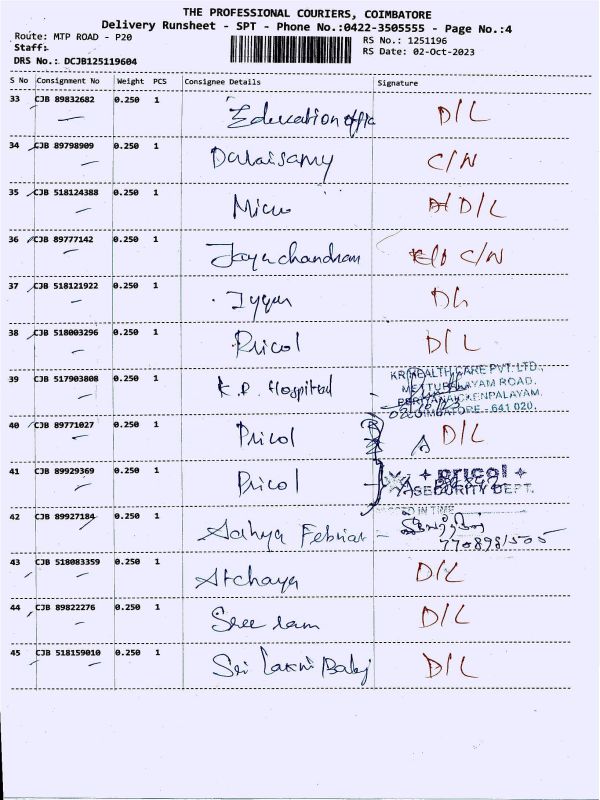 THE PROFESSIONAL COURIERS, COIMBATORE
Delivery Runsheet - SPT - Phone No.:0422-3505555 - Page No.:4
Route: MTP ROAD - P20
RS No.: 1251196
Staff:
RS Date: 02-Oct-2023
DRS No.: DCJB125119604
S No Consignment No Weight PCS Consignee Details Signature
33 CJB 89832682 0.250 1 Education office D/L
34 CJB 89798909 0.250 1 Dalaisamy C/N
35 CJB 518124388 0.250 1 Micro D/L
36 CJB 89777142 0.250 1 Jayachandram C/N
37 CJB 518121922 0.250 1 Iyyan D/L
38 CJB 518003296 0.250 1 Pricol D/L
39 CJB 517903808 0.250 1 K.R. Hospital
KR HEALTH CARE PVT. LTD.,
METTUPALAYAM ROAD,
PERIYANAICKENPALAYAM,
COIMBATORE - 641 020.
40 CJB 89771027 0.250 1 Pricol D/L
41 CJB 89929369 0.250 1 Pricol
+ pricol +
SECURITY DEPT.
IN TIME
42 CJB 89927184 0.250 1
43 CJB 518083359 0.250 1 Atchaya D/L
44 CJB 89822276 0.250 1 Sree ram D/L
45 CJB 518159010 0.250 1 Sri Laxmi D/L